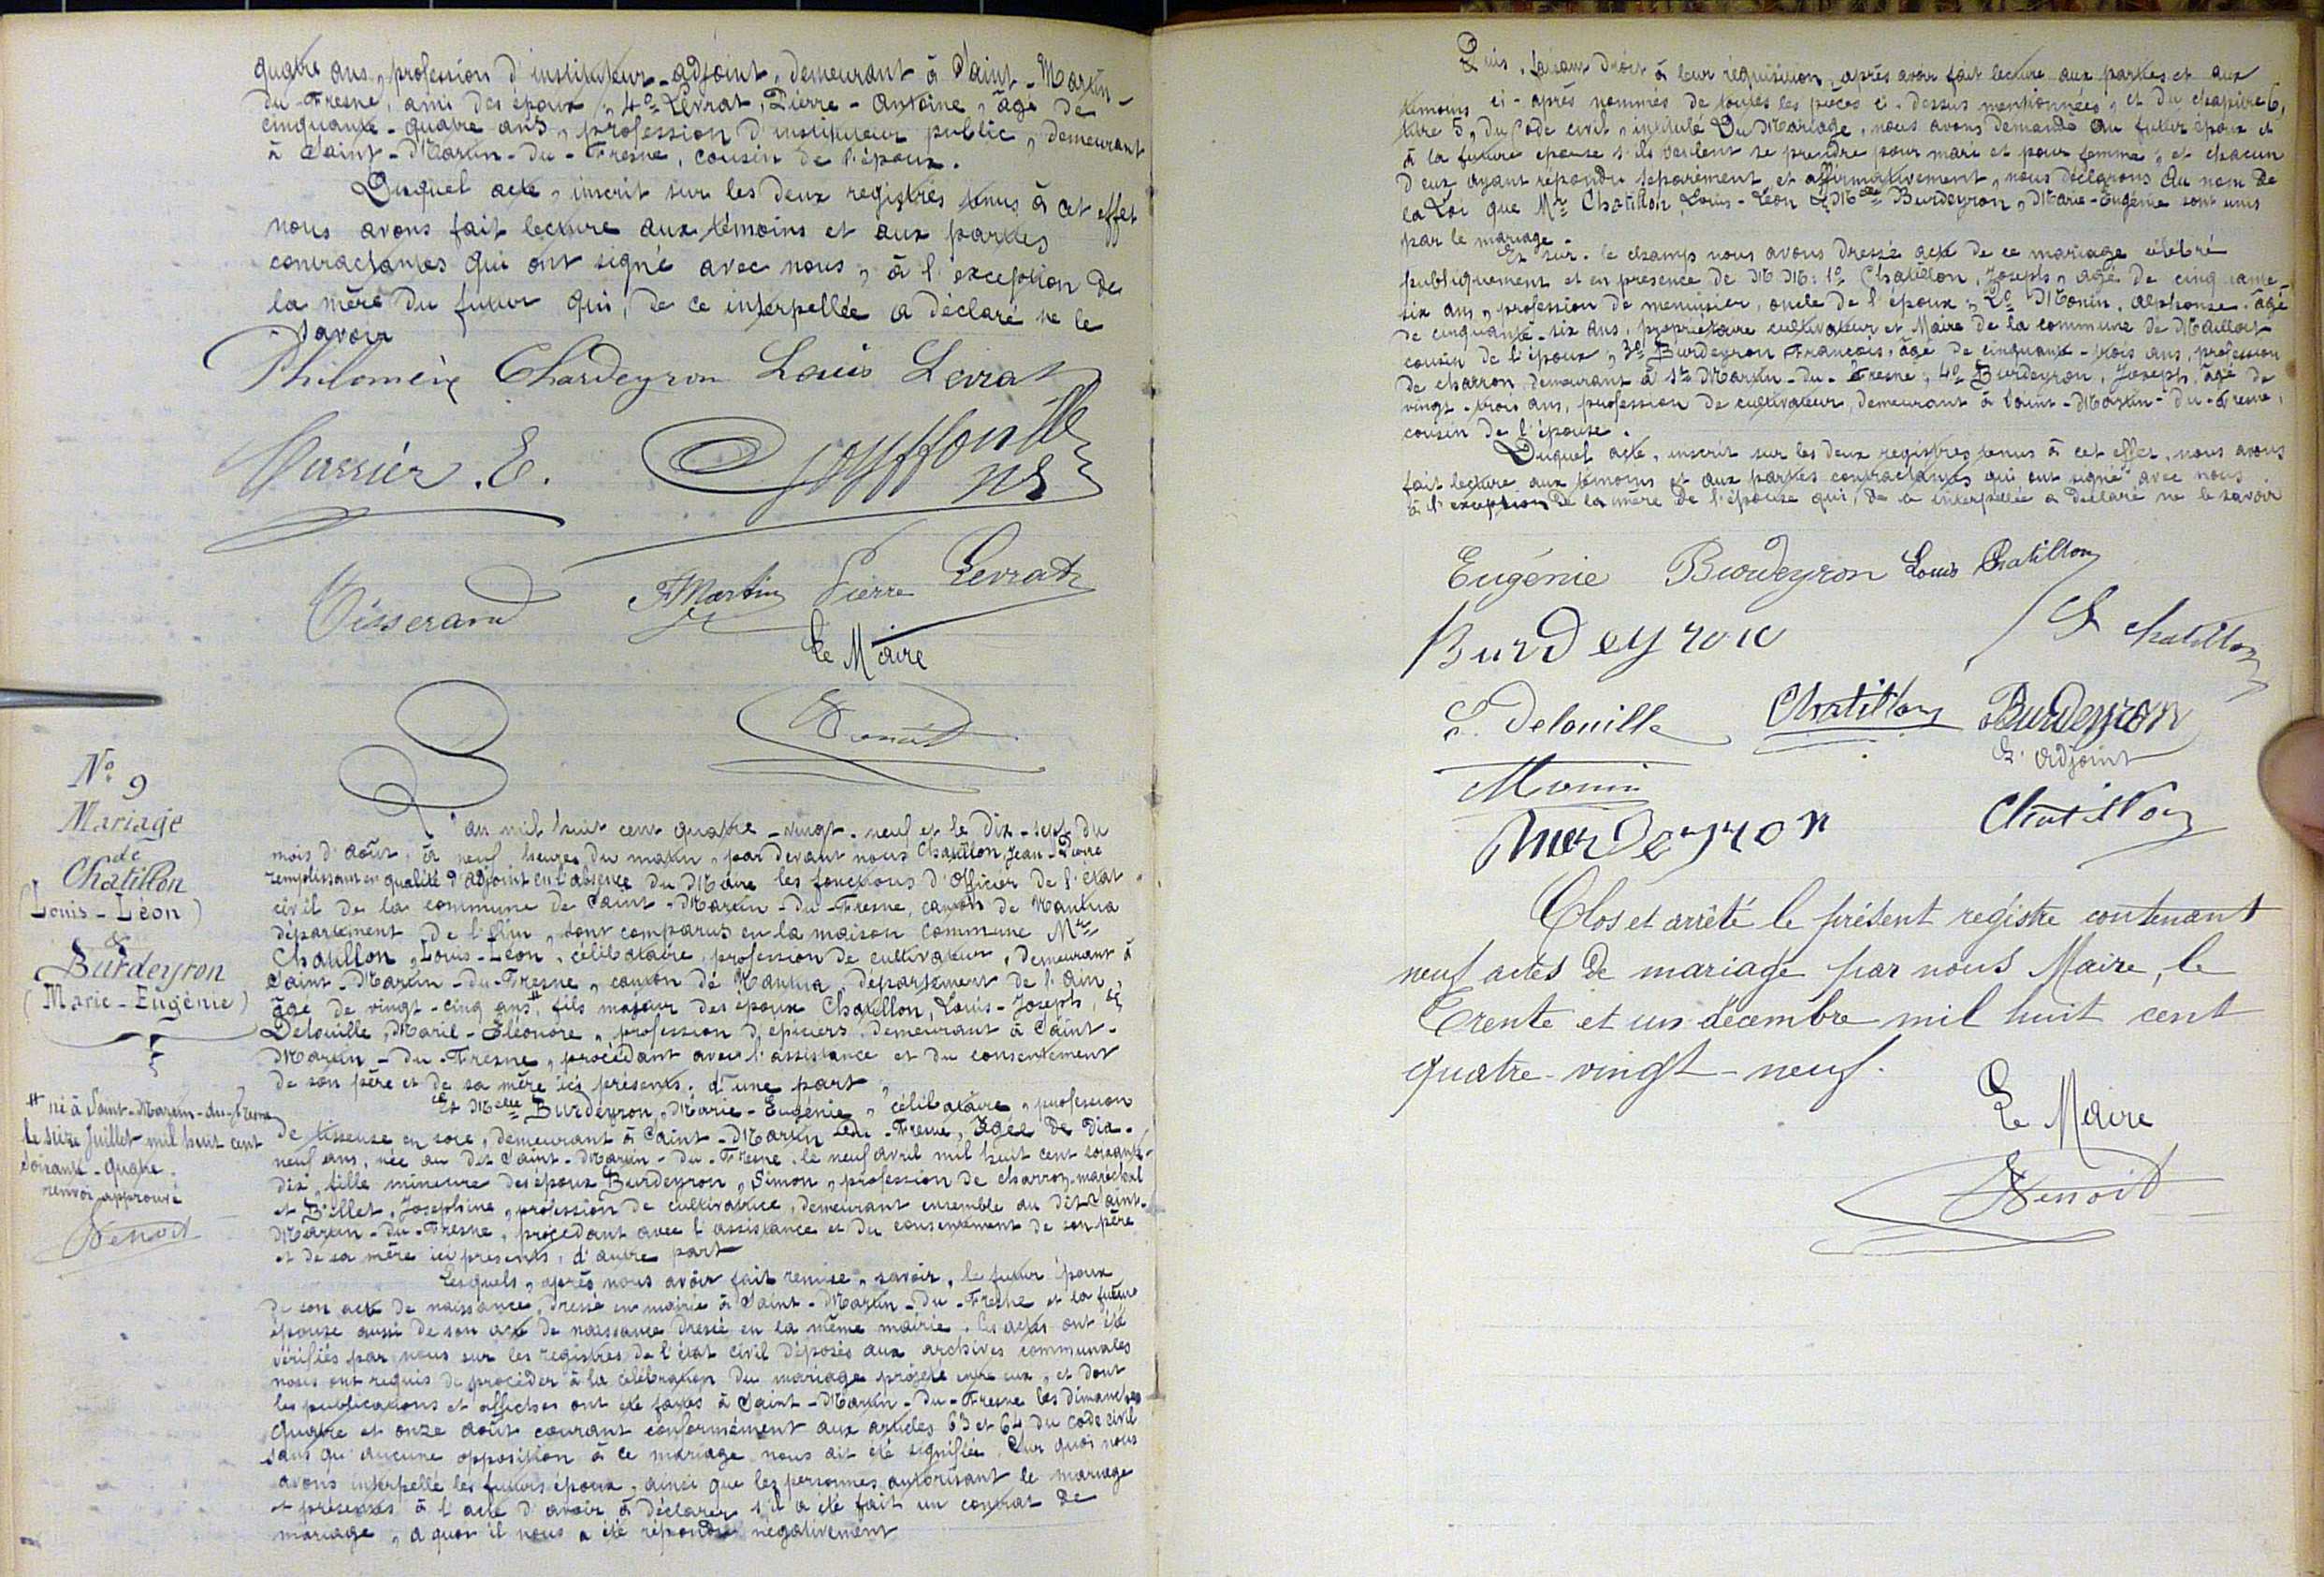 quatre ans, profession d'instituteur-adjoint, demeurant à Saint-Martin-
du-Fresne, ami des époux, 4° Levrat, Pierre-Antoine, âgé de
cinquante-quatre ans, profession d'instituteur public, demeurant
à Saint-Martin-du-Fresne, cousin de l'époux.
Duquel acte, inscrit sur les deux registres tenus à cet effet
nous avons fait lecture aux témoins et aux parties
contractantes qui ont signé avec nous, à l'exception de
la mère du futur qui, de ce interpellée a déclaré ne le
savoir
Philomène Chardeyron Louis Levrat
E.
Tisserand Martin Pierre Levrat
Le Maire
Benoit
N° 9
Mariage
de
Chatillon
(Louis-Léon)
&
Burdeyron
(Marie-Eugénie)
# né à Saint-Martin-du-Fresne
le seize Juillet mil huit cent
soixante-quatre.
renvoi approuvé
Benoit
L'an mil huit cent quatre-vingt-neuf et le dix-sept du
mois d'août, à neuf heures du matin, par devant nous Chatillon, Jean-Pierre
remplissant en qualité d'adjoint en l'absence du Maire les fonctions d'Officier de l'état
civil de la commune de Saint-Martin-du-Fresne, canton de Nantua
département de l'Ain, sont comparus en la maison commune Mr
Chatillon, Louis-Léon, célibataire, profession de cultivateur, demeurant à
Saint-Martin-du-Fresne, canton de Nantua, département de l'Ain,
âgé de vingt-cinq ans #, fils majeur des époux Chatillon, Louis-Joseph, et
Delouille, Marie-Eléonore, profession d'épiciers demeurant à Saint-
Martin-du-Fresne, procédant avec l'assistance et du consentement
de son père et de sa mère ici présents. d'une part,
Et Melle Burdeyron, Marie-Eugénie, célibataire, profession
de tisseuse en soie, demeurant à Saint-Martin-du-Fresne, âgée de dix-
neuf ans, née au dit Saint-Martin-du-Fresne, le neuf avril mil huit cent soixante-
dix, fille mineure des époux Burdeyron, Simon, profession de charron-maréchal
et Billet, Joséphine, profession de cultivatrice, demeurant ensemble au dit Saint-
Martin-du-Fresne, procédant avec l'assistance et du consentement de son père
et de sa mère ici présents, d'autre part
Lesquels, après nous avoir fait remise, savoir, le futur époux
de son acte de naissance, dressé en mairie à Saint-Martin-du-Fresne et la future
épouse aussi de son acte de naissance dressé en la même mairie. Ces actes ont été
vérifiés par nous sur les registres de l'état civil déposés aux archives communales
nous ont requis de procéder à la célébration du mariage projeté entre eux, et dont
les publications et affiches ont été faites à Saint-Martin-du-Fresne les dimanches
quatre et onze août courant conformément aux articles 63 et 64 du code civil
sans qu'aucune opposition à ce mariage nous ait été signifiée. Sur quoi nous
avons interpellé les futurs époux, ainsi que les personnes autorisant le mariage
et présentes à l'acte d'avoir à déclarer s'il a été fait un contrat de
mariage, à quoi il nous a été répondu négativement
Puis, faisant droit à leur réquisition, après avoir fait lecture aux parties et aux
témoins ci-après nommés de toutes les pièces ci-dessus mentionnées, et du chapitre 6,
titre 5, du Code civil, intitulé Du Mariage, nous avons demandé au futur époux et
à la future épouse s'ils veulent se prendre pour mari et pour femme, et chacun
d'eux ayant répondu séparément et affirmativement, nous déclarons au nom de
la Loi que Mr Chatillon, Louis-Léon & Melle Burdeyron, Marie-Eugénie sont unis
par le mariage.
Et sur-le champ nous avons dressé acte de ce mariage célébré
publiquement et en présence de M.M: 1° Chatillon, Joseph, âgé de cinquante-
six ans, profession de menuisier, oncle de l'époux, 2° Monin, Alphonse, âgé
de cinquante-six ans, propriétaire cultivateur et Maire de la commune de Maillat
cousin de l'époux, 3° Burdeyron François, âgé de cinquante-trois ans, profession
de charron, demeurant à St Martin-du-Fresne, 4° Burdeyron, Joseph, âgé de
vingt-trois ans, profession de cultivateur, demeurant à Saint-Martin-du-Fresne,
cousin de l'épouse.
Duquel acte, inscrit sur les deux registres tenus à cet effet, nous avons
fait lecture aux témoins et aux parties contractantes qui ont signé avec nous
à l'exception de la mère de l'épouse qui, de ce interpellée a déclaré ne le savoir
Eugénie Burdeyron Louis Chatillon
Burdeyron Chatillon
Delouille Chatillon Burdeyron
L'adjoint
Monin
Burdeyron Chatillon
Clos et arrêté le présent registre contenant
neuf actes de mariage par nous Maire, le
Trente et un décembre mil huit cent
quatre-vingt-neuf.
Le Maire
Benoit